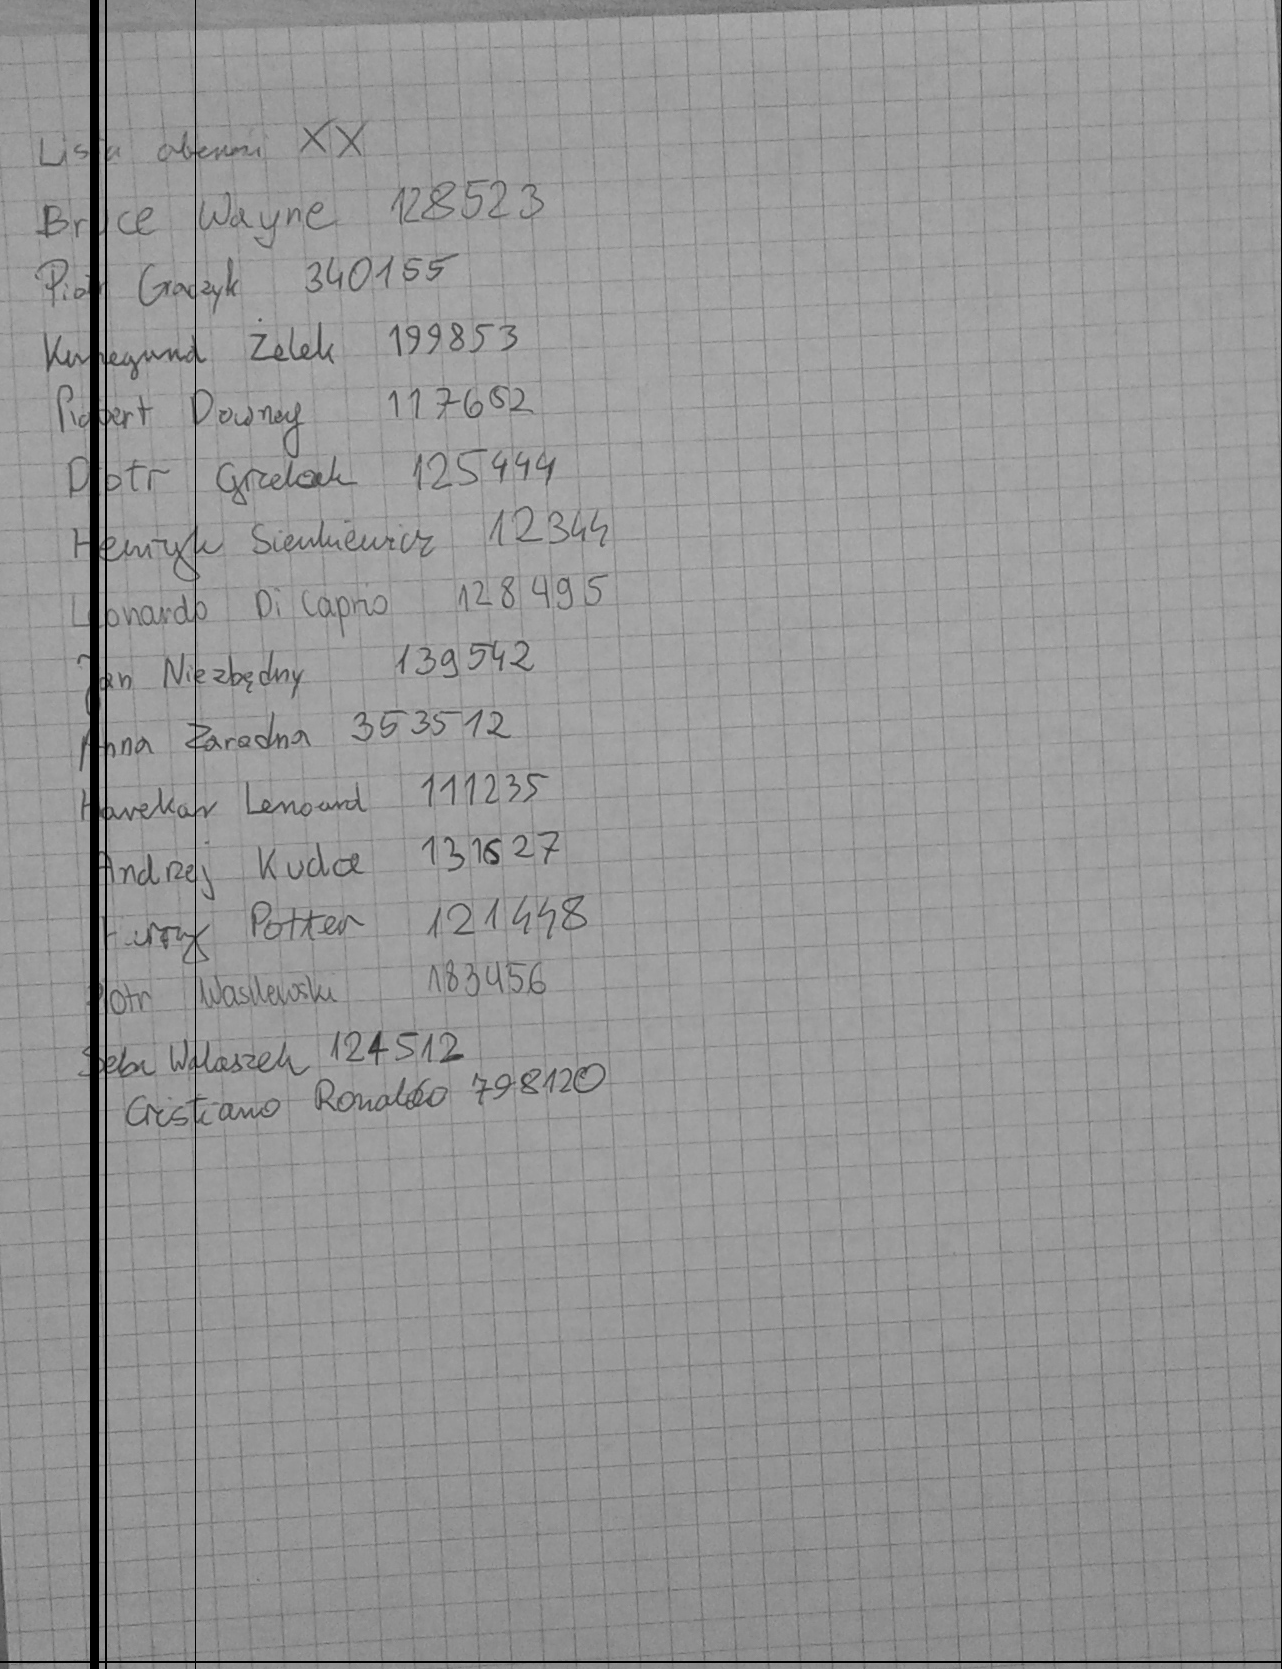 Lista obecności XX
Bruce Wayne 128523
Piotr Graczyk 340155
Kunegund Żelek 199853
Robert Downey 117652
Piotr Grzelak 125444
Henryk Sienkiewicz 12344
Leonardo Di Caprio 128495
Jan Niezbędny 139542
Anna Zaradna 353512
Lenoard 111235
Andrzej Kudca 131627
Harry Potter 121448
Piotr Wasilewski 183456
Seba Walaszek 124512
Cristiano Ronaldo 798120